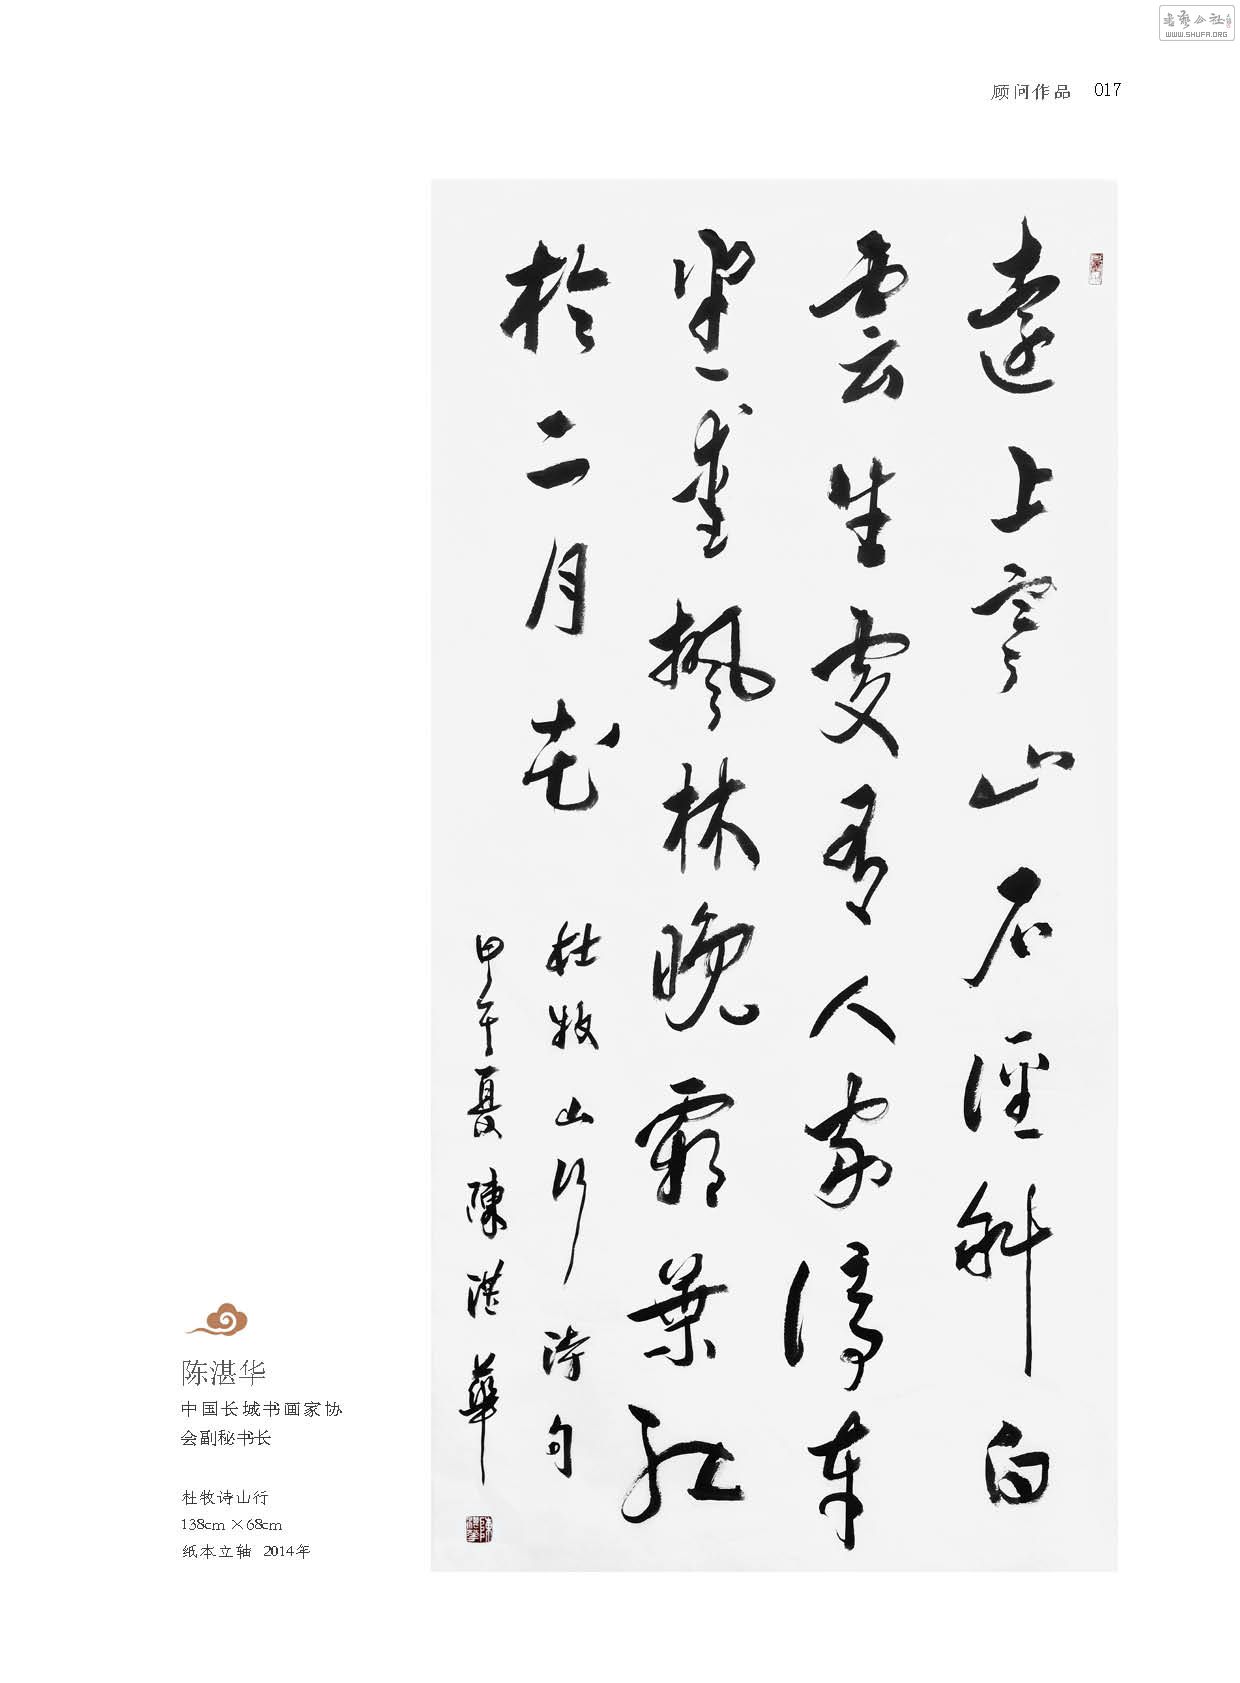 书艺公社
WWW.SHUFA.ORG
顾问作品 017
遠上寒山石徑斜白
雲生處有人家停車
坐愛楓林晚霜葉紅
於二月花
杜牧山行詩句
甲午夏陳湛華
陈湛华
中国长城书画家协
会副秘书长
杜牧诗山行
138cm×68cm
纸本立轴 2014年